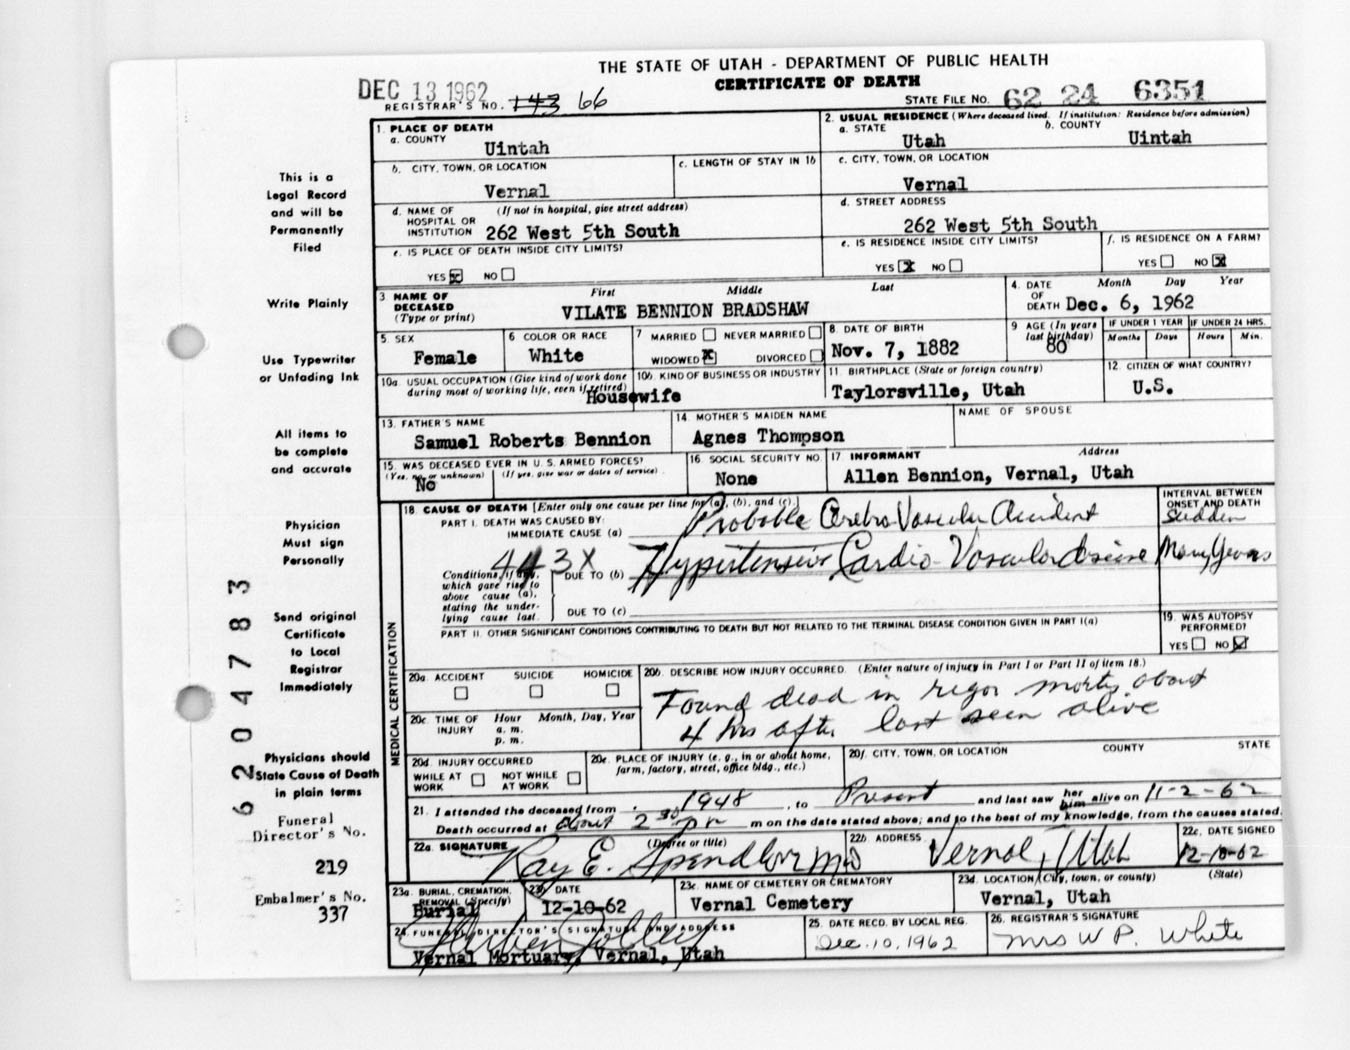 THE STATE OF UTAH - DEPARTMENT OF PUBLIC HEALTH
CERTIFICATE OF DEATH
DEC 13 1962
REGISTRAR'S NO. 143 66
STATE FILE NO. 62 24 6351
This is a
Legal Record
and will be
Permanently
Filed
Write Plainly
Use Typewriter
or Unfading Ink
All items to
be complete
and accurate
Physician
Must sign
Personally
Send original
Certificate
to Local
Registrar
Immediately
Physicians should
State Cause of Death
in plain terms
Funeral
Director's No.
219
Embalmer's No.
337
6204783
1. PLACE OF DEATH
a. COUNTY
Uintah
2. USUAL RESIDENCE (Where deceased lived. If institution: Residence before admission)
a. STATE
Utah
b. COUNTY
Uintah
b. CITY, TOWN, OR LOCATION
Vernal
c. LENGTH OF STAY IN 1b
c. CITY, TOWN, OR LOCATION
Vernal
d. NAME OF HOSPITAL OR INSTITUTION
(If not in hospital, give street address)
262 West 5th South
d. STREET ADDRESS
262 West 5th South
e. IS PLACE OF DEATH INSIDE CITY LIMITS?
YES X NO
e. IS RESIDENCE INSIDE CITY LIMITS?
YES X NO
f. IS RESIDENCE ON A FARM?
YES NO X
3. NAME OF DECEASED (Type or print)
First Middle Last
VILATE BENNION BRADSHAW
4. DATE OF DEATH
Month Day Year
Dec. 6, 1962
5. SEX
Female
6 COLOR OR RACE
White
7 MARRIED NEVER MARRIED
WIDOWED X DIVORCED
8. DATE OF BIRTH
Nov. 7, 1882
9 AGE (In years last birthday)
80
IF UNDER 1 YEAR
Months Days
IF UNDER 24 HRS.
Hours Min.
10a. USUAL OCCUPATION (Give kind of work done during most of working life, even if retired)
Housewife
10b. KIND OF BUSINESS OR INDUSTRY
11. BIRTHPLACE (State or foreign country)
Taylorsville, Utah
12. CITIZEN OF WHAT COUNTRY?
U.S.
13. FATHER'S NAME
Samuel Roberts Bennion
14. MOTHER'S MAIDEN NAME
Agnes Thompson
NAME OF SPOUSE
15. WAS DECEASED EVER IN U.S. ARMED FORCES?
(Yes, no, or unknown) (If yes, give war or dates of service)
No
16. SOCIAL SECURITY NO.
None
17. INFORMANT Address
Allen Bennion, Vernal, Utah
MEDICAL CERTIFICATION
18. CAUSE OF DEATH [Enter only one cause per line for (a), (b), and (c).]
INTERVAL BETWEEN ONSET AND DEATH
PART I. DEATH WAS CAUSED BY:
IMMEDIATE CAUSE (a) Probable Cerebro-Vascular Accident
Sudden
443X
Conditions, if any, which gave rise to above cause (a), stating the underlying cause last.
DUE TO (b) Hypertensive Cardio-Vascular disease
Many Years
DUE TO (c)
PART II. OTHER SIGNIFICANT CONDITIONS CONTRIBUTING TO DEATH BUT NOT RELATED TO THE TERMINAL DISEASE CONDITION GIVEN IN PART I(a)
19. WAS AUTOPSY PERFORMED?
YES NO
20a. ACCIDENT SUICIDE HOMICIDE
20b. DESCRIBE HOW INJURY OCCURRED. (Enter nature of injury in Part I or Part II of item 18.)
Found dead in rigor mortis about
4 hrs after last seen alive
20c. TIME OF INJURY
Hour Month, Day, Year
a. m.
p. m.
20d. INJURY OCCURRED
WHILE AT WORK NOT WHILE AT WORK
20e. PLACE OF INJURY (e. g., in or about home, farm, factory, street, office bldg., etc.)
20f. CITY, TOWN, OR LOCATION COUNTY STATE
21. I attended the deceased from 1948, to Present and last saw her him alive on 11-2-62
Death occurred at about 2 30 p m m on the date stated above; and to the best of my knowledge, from the causes stated.
22a. SIGNATURE (Degree or title)
Ray E. Spendlove MD
22b ADDRESS
Vernal, Utah
22c. DATE SIGNED
12-10-62
23a. BURIAL, CREMATION, REMOVAL (Specify)
Burial
23b. DATE
12-10-62
23c. NAME OF CEMETERY OR CREMATORY
Vernal Cemetery
23d. LOCATION (City, town, or county) (State)
Vernal, Utah
24. FUNERAL DIRECTOR'S SIGNATURE AND ADDRESS
Vernal Mortuary, Vernal, Utah
25. DATE RECD. BY LOCAL REG.
Dec. 10, 1962
26. REGISTRAR'S SIGNATURE
Mrs W P. White